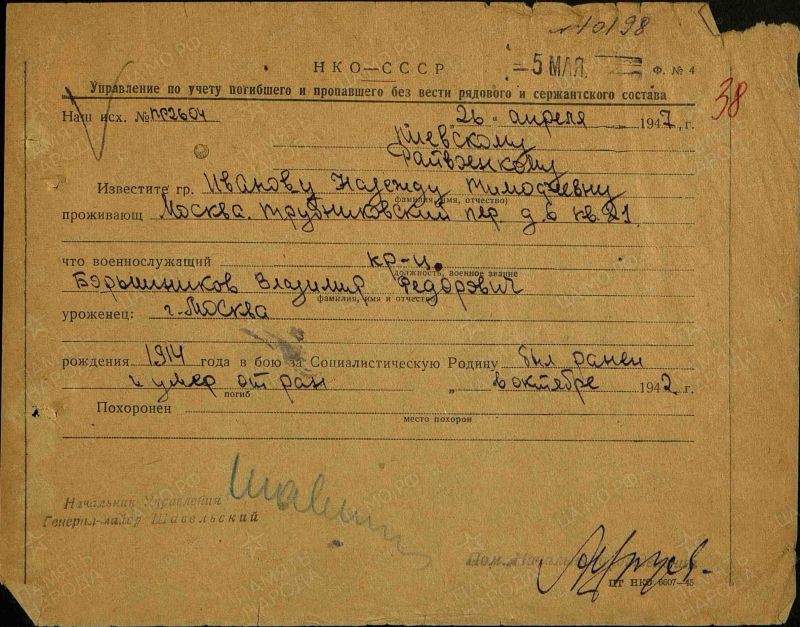 №10198
НКО—СССР
5 МАЯ
Ф. № 4
Управление по учету погибшего и пропавшего без вести рядового и сержантского состава
38
Наш исх. №
26 апреля 1947 г.
Киевскому
Райвоенкому
Известите гр. Иванову Надежду Тимофеевну
фамилия, имя, отчество)
проживающ Москва. Трубниковский пер д.6 кв.21
что военнослужащий кр-ц.
должность, военное звание
Барышников Владимир Федорович
фамилия, имя и отчество
уроженец: г. Москва
рождения 1914 года в бою за Социалистическую Родину был ранен
и умер от ран „ в октябре 1942 г.
погиб
Похоронен
место похорон
Начальник Управления
Генерал-майор Шавельский
Пом. Начальника
пт НКО 6607—45